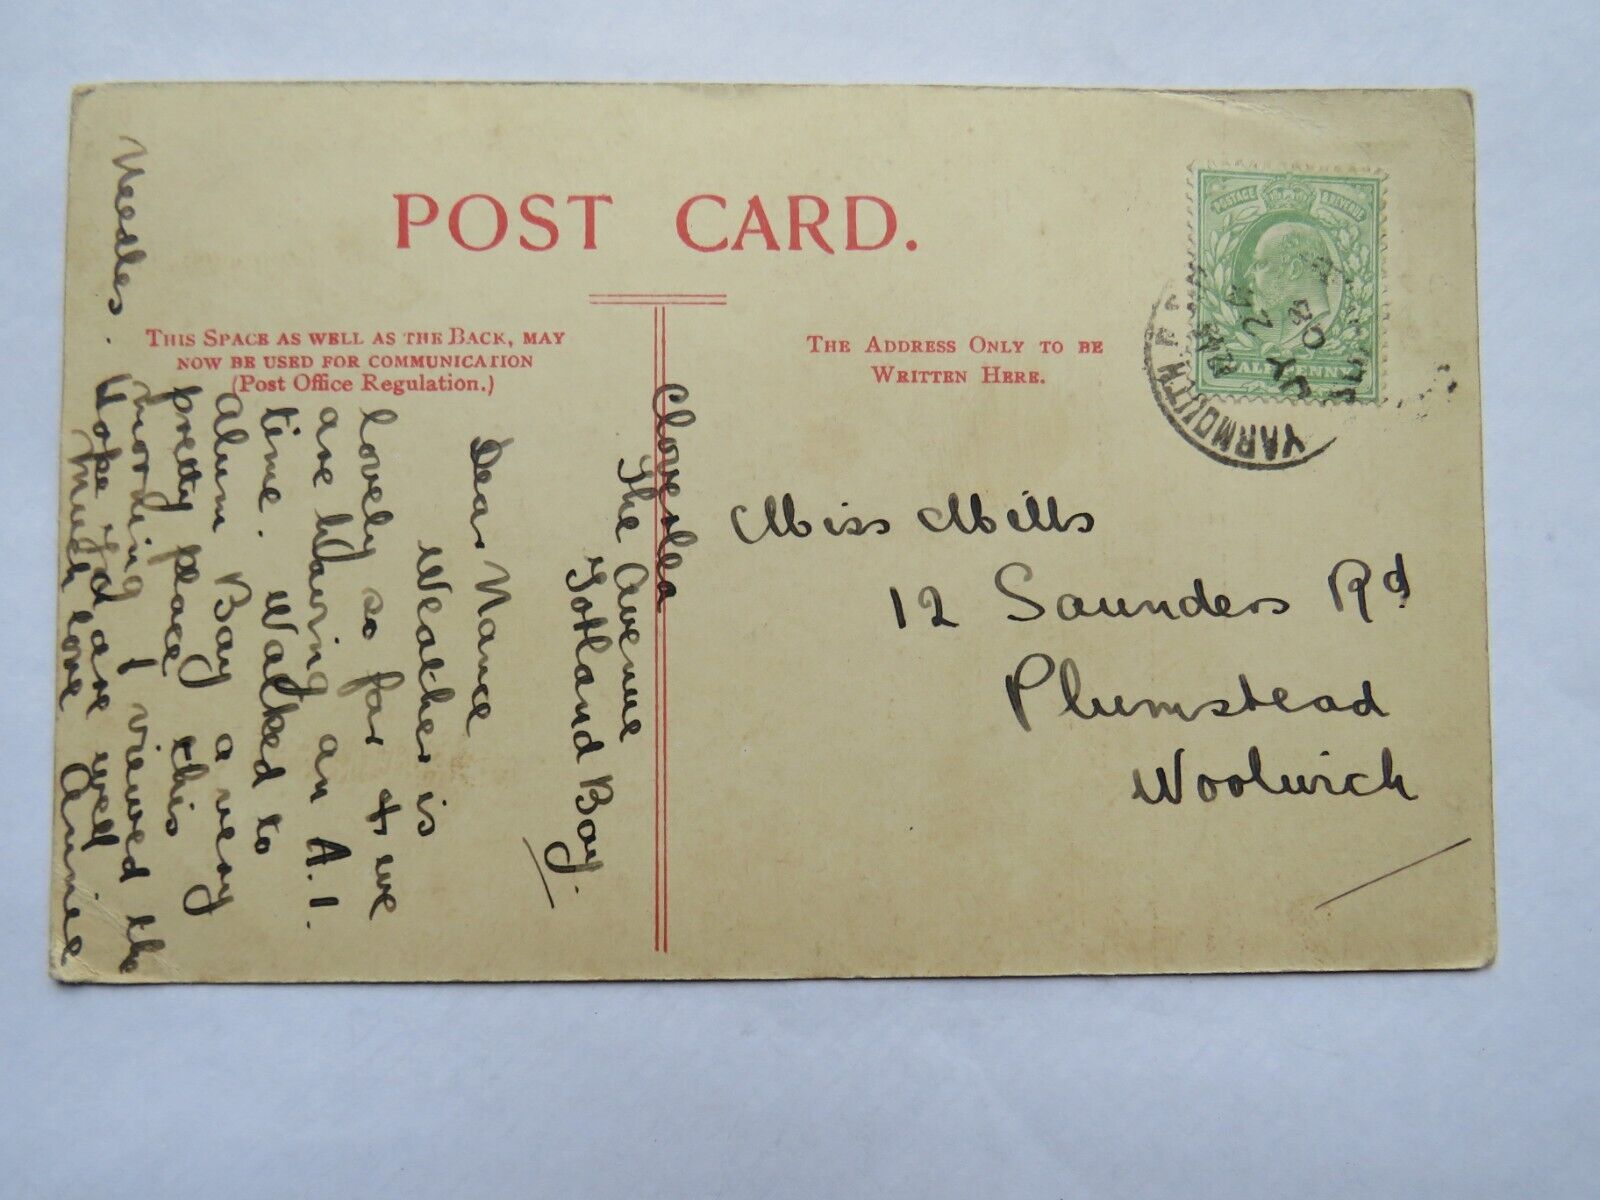 POST CARD.
THIS SPACE AS WELL AS THE BACK, MAY
NOW BE USED FOR COMMUNICATION
(Post Office Regulation.)
THE ADDRESS ONLY TO BE
WRITTEN HERE.
POSTAGE & REVENUE
HALFPENNY
YARMOUTH
JY 24
Cloverlea
The Avenue
Totland Bay.
Dear Nance
Weather is
lovely so far & we
are having an A.1.
time. Walked to
Alum Bay a very
pretty place this
morning & viewed the
Needles.
Hope yd are well
Much love Annie
Miss Mills
12 Saunders Rd
Plumstead
Woolwich